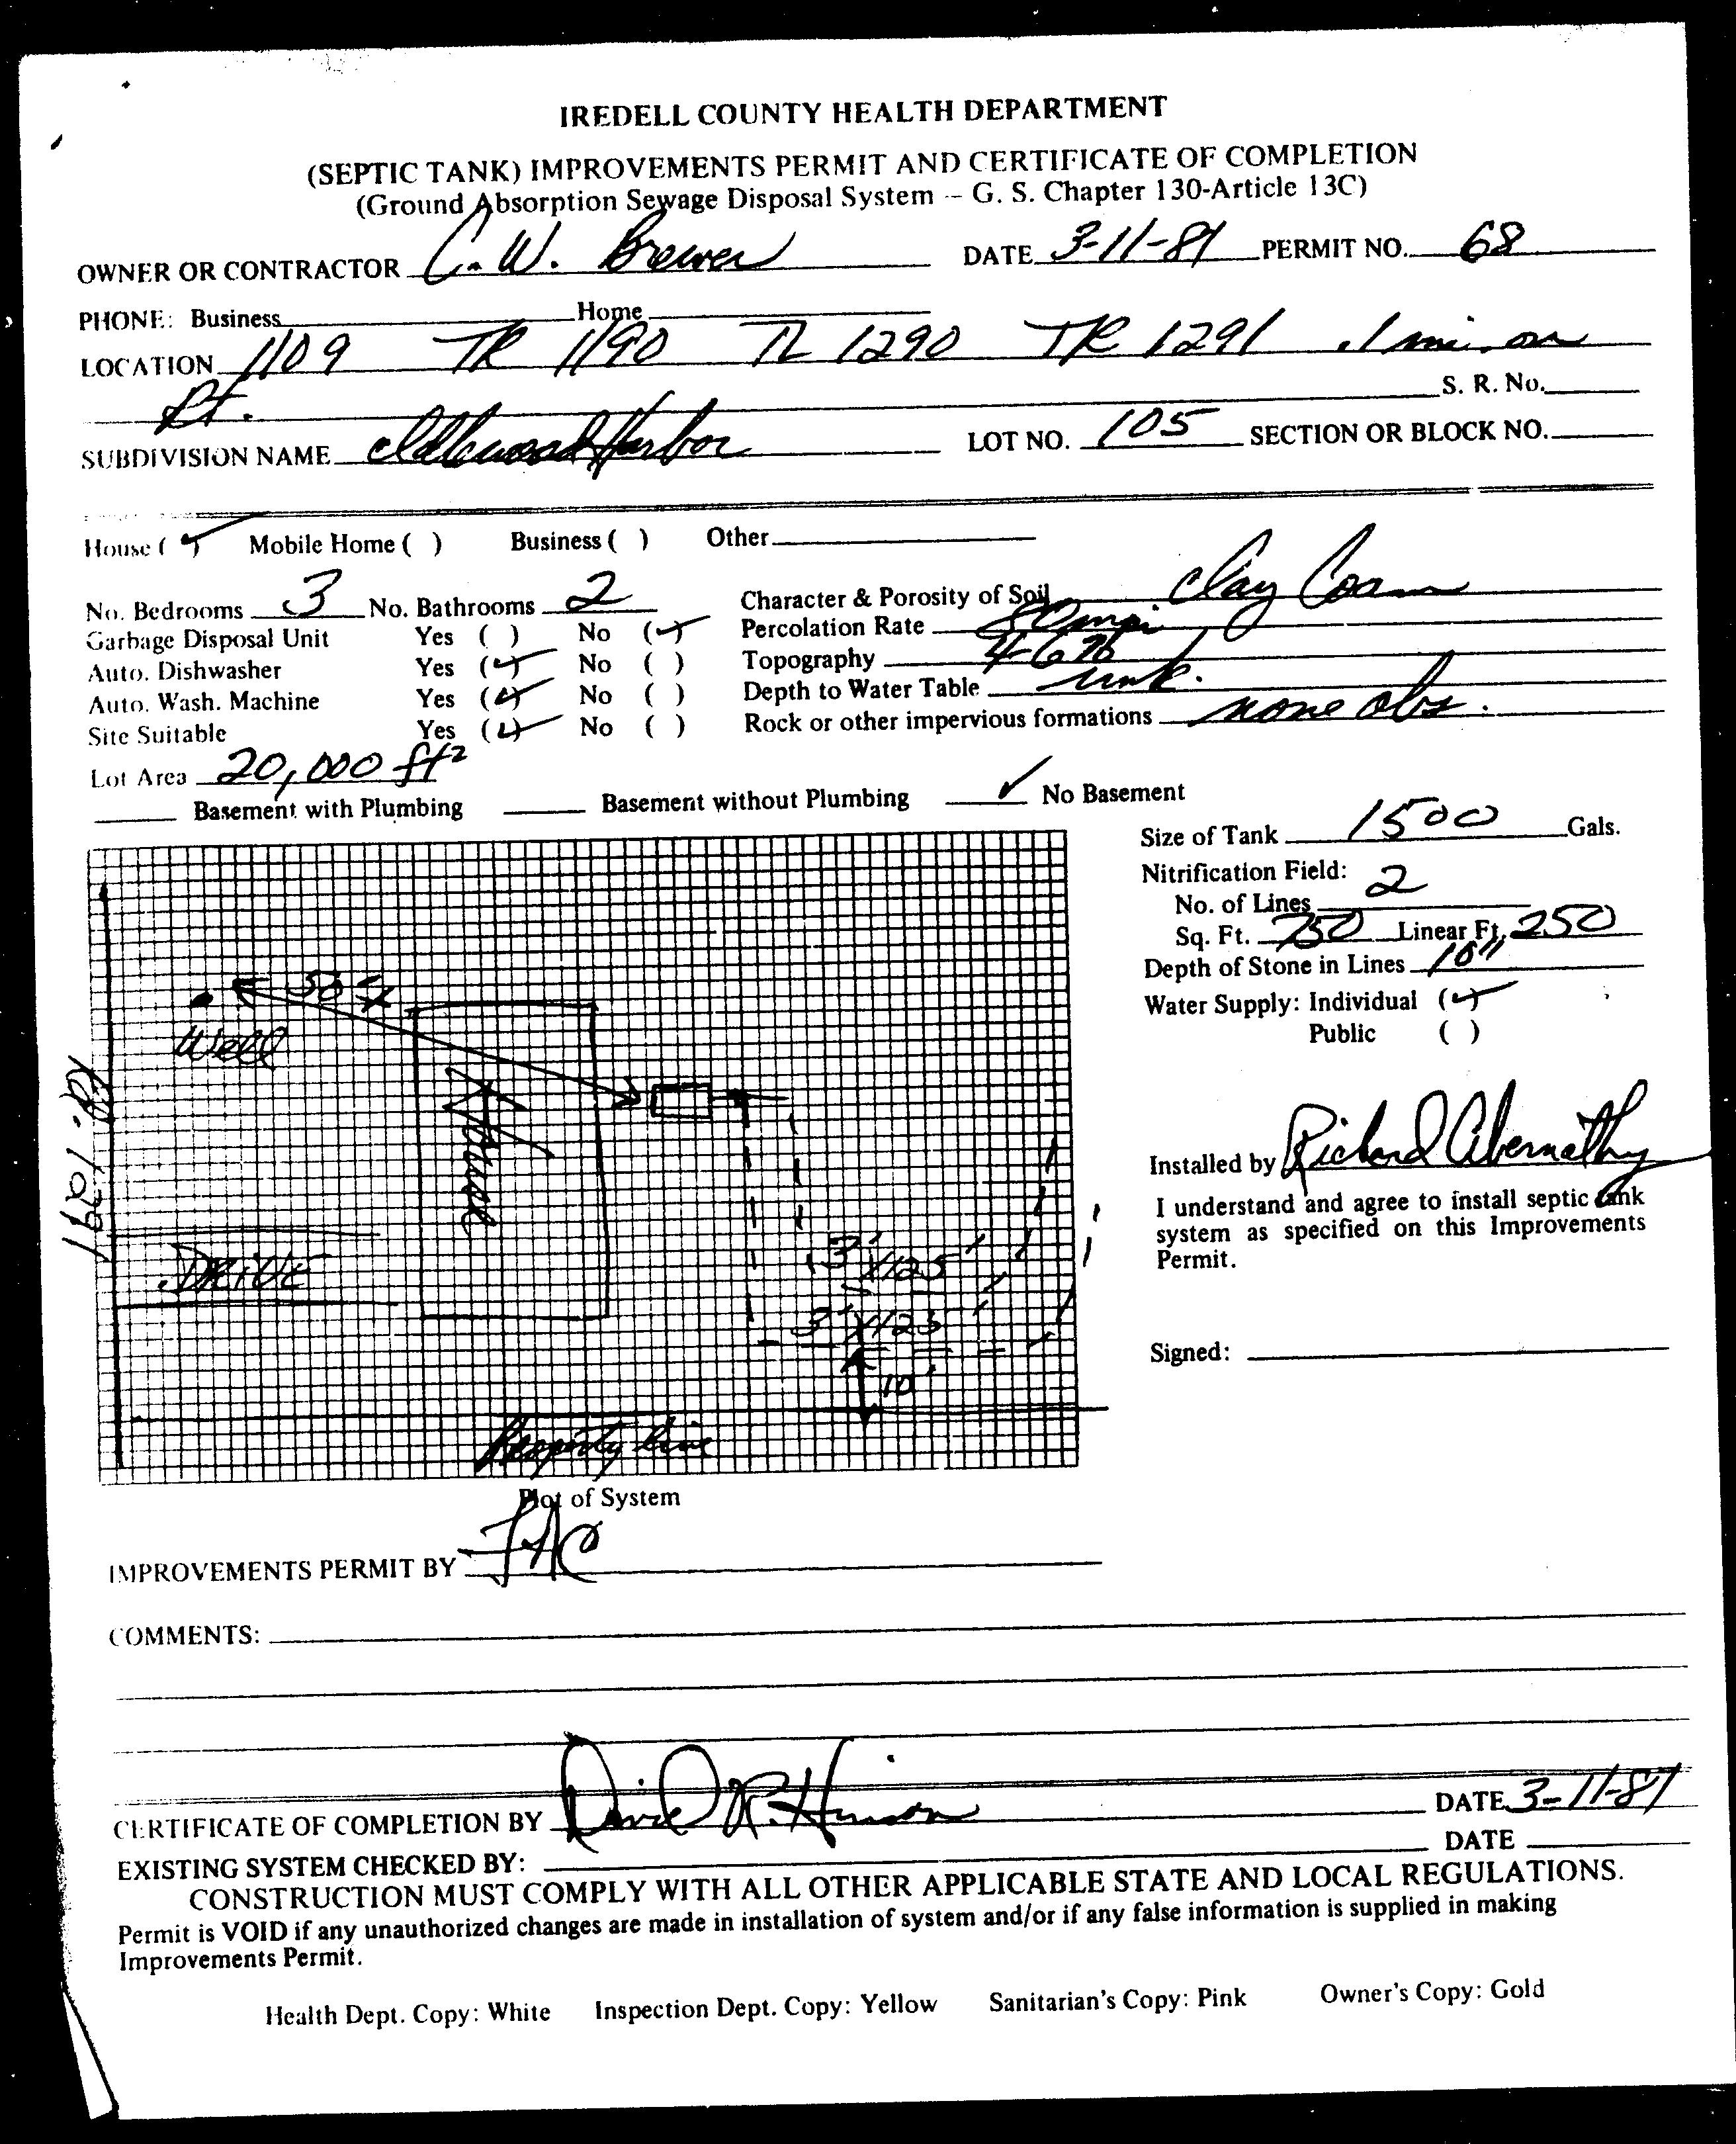 IREDELL COUNTY HEALTH DEPARTMENT
(SEPTIC TANK) IMPROVEMENTS PERMIT AND CERTIFICATE OF COMPLETION
(Ground Absorption Sewage Disposal System -- G. S. Chapter 130-Article 13C)
OWNER OR CONTRACTOR C. W. Brewer DATE 3-11-87 PERMIT NO. 68
PHONE: Business Home
LOCATION 1109 TR 1190 TL 1290 TR 1291 .1 mi. on
Rt. S. R. No.
SUBDIVISION NAME Harbor LOT NO. 105 SECTION OR BLOCK NO.
House (✓) Mobile Home ( ) Business ( ) Other
No. Bedrooms 3 No. Bathrooms 2 Character & Porosity of Soil Clay Loam
Garbage Disposal Unit Yes ( ) No (✓) Percolation Rate 80 mpi
Auto. Dishwasher Yes (✓) No ( ) Topography 4-6%
Auto. Wash. Machine Yes (✓) No ( ) Depth to Water Table unk.
Site Suitable Yes (✓) No ( ) Rock or other impervious formations none obs.
Lot Area 20,000 ft²
Basement with Plumbing Basement without Plumbing ✓ No Basement
Size of Tank 1500 Gals.
Nitrification Field:
No. of Lines 2
Sq. Ft. 750 Linear Ft. 250
Depth of Stone in Lines 10"
Water Supply: Individual (✓)
Public ( )
50'
Well
House
Rd. 1291
Drive
3' X 125'
3' X 125'
10'
Property line
Installed by Richard Abernathy
I understand and agree to install septic tank
system as specified on this Improvements
Permit.
Signed:
Plot of System
IMPROVEMENTS PERMIT BY
COMMENTS:
CERTIFICATE OF COMPLETION BY David R. Hinson DATE 3-11-87
EXISTING SYSTEM CHECKED BY: DATE
CONSTRUCTION MUST COMPLY WITH ALL OTHER APPLICABLE STATE AND LOCAL REGULATIONS.
Permit is VOID if any unauthorized changes are made in installation of system and/or if any false information is supplied in making
Improvements Permit.
Health Dept. Copy: White Inspection Dept. Copy: Yellow Sanitarian's Copy: Pink Owner's Copy: Gold